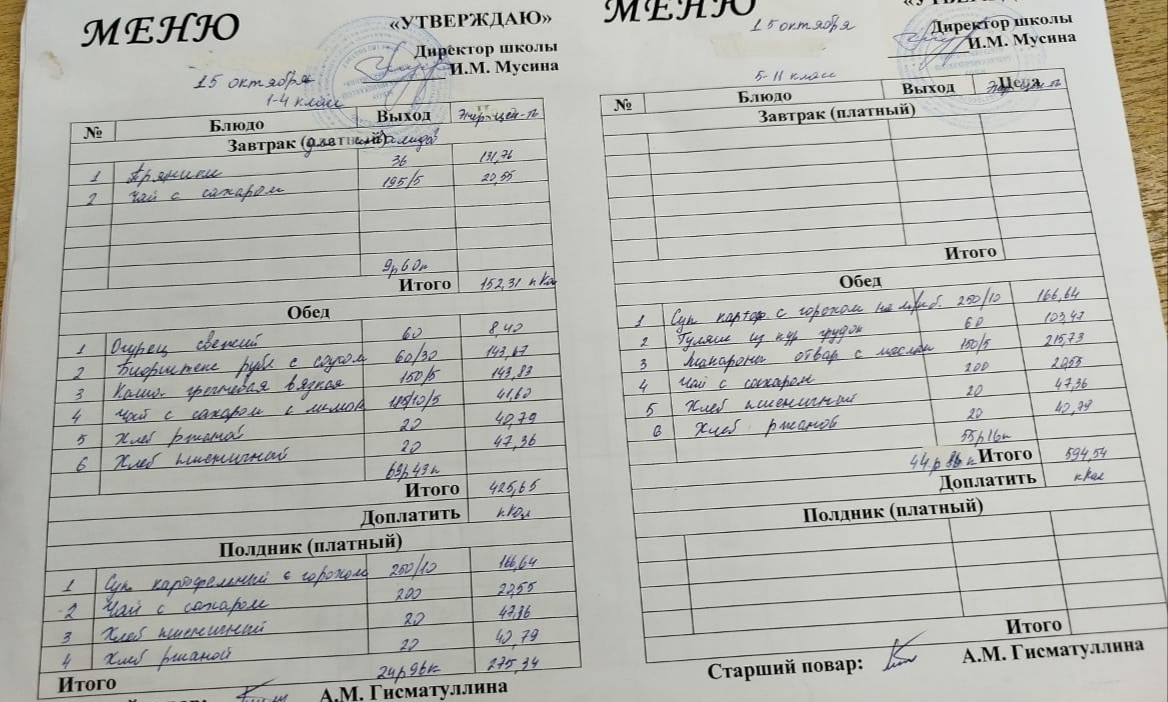 МЕНЮ
«УТВЕРЖДАЮ»
Директор школы
И.М. Мусина
15 октября
1-4 класс
№ Блюдо Выход
Завтрак (платный)
1 Пряники 36 131,76
2 Чай с сахаром 195/5 20,55
9р60к
Итого 152,31 кКал
Обед
1 Огурец свежий 60 8.40
2 Бифштекс рубл с соусом 60/30 143,67
3 Каша гречневая вязкая 150/5 143,83
4 Чай с сахаром с лимон 185/10/5 41,60
5 Хлеб ржаной 20 40,79
6 Хлеб пшеничный 20 47,36
69р49к
Итого 425,65
Доплатить кКал
Полдник (платный)
1 Суп картофельный с горохом 250/10 166,64
2 Чай с сахаром 200 20,55
3 Хлеб пшеничный 20 47,36
4 Хлеб ржаной 20 40,79
Итого 24р96к 275,34
А.М. Гисматуллина
МЕНЮ
15 октября
Директор школы
И.М. Мусина
5-11 класс
№ Блюдо Выход Цена
Завтрак (платный)
Итого
Обед
1 Суп картоф с горохом на м/к б. 250/10 166,64
2 Гуляш из кур грудок 60 103,47
3 Макароны отвар с маслом 150/5 215,73
4 Чай с сахаром 200 20,55
5 Хлеб пшеничный 20 47,36
6 Хлеб ржаной 20 40,79
55р16к
Итого 594,54
Доплатить кКал
Полдник (платный)
Итого
Старший повар: А.М. Гисматуллина